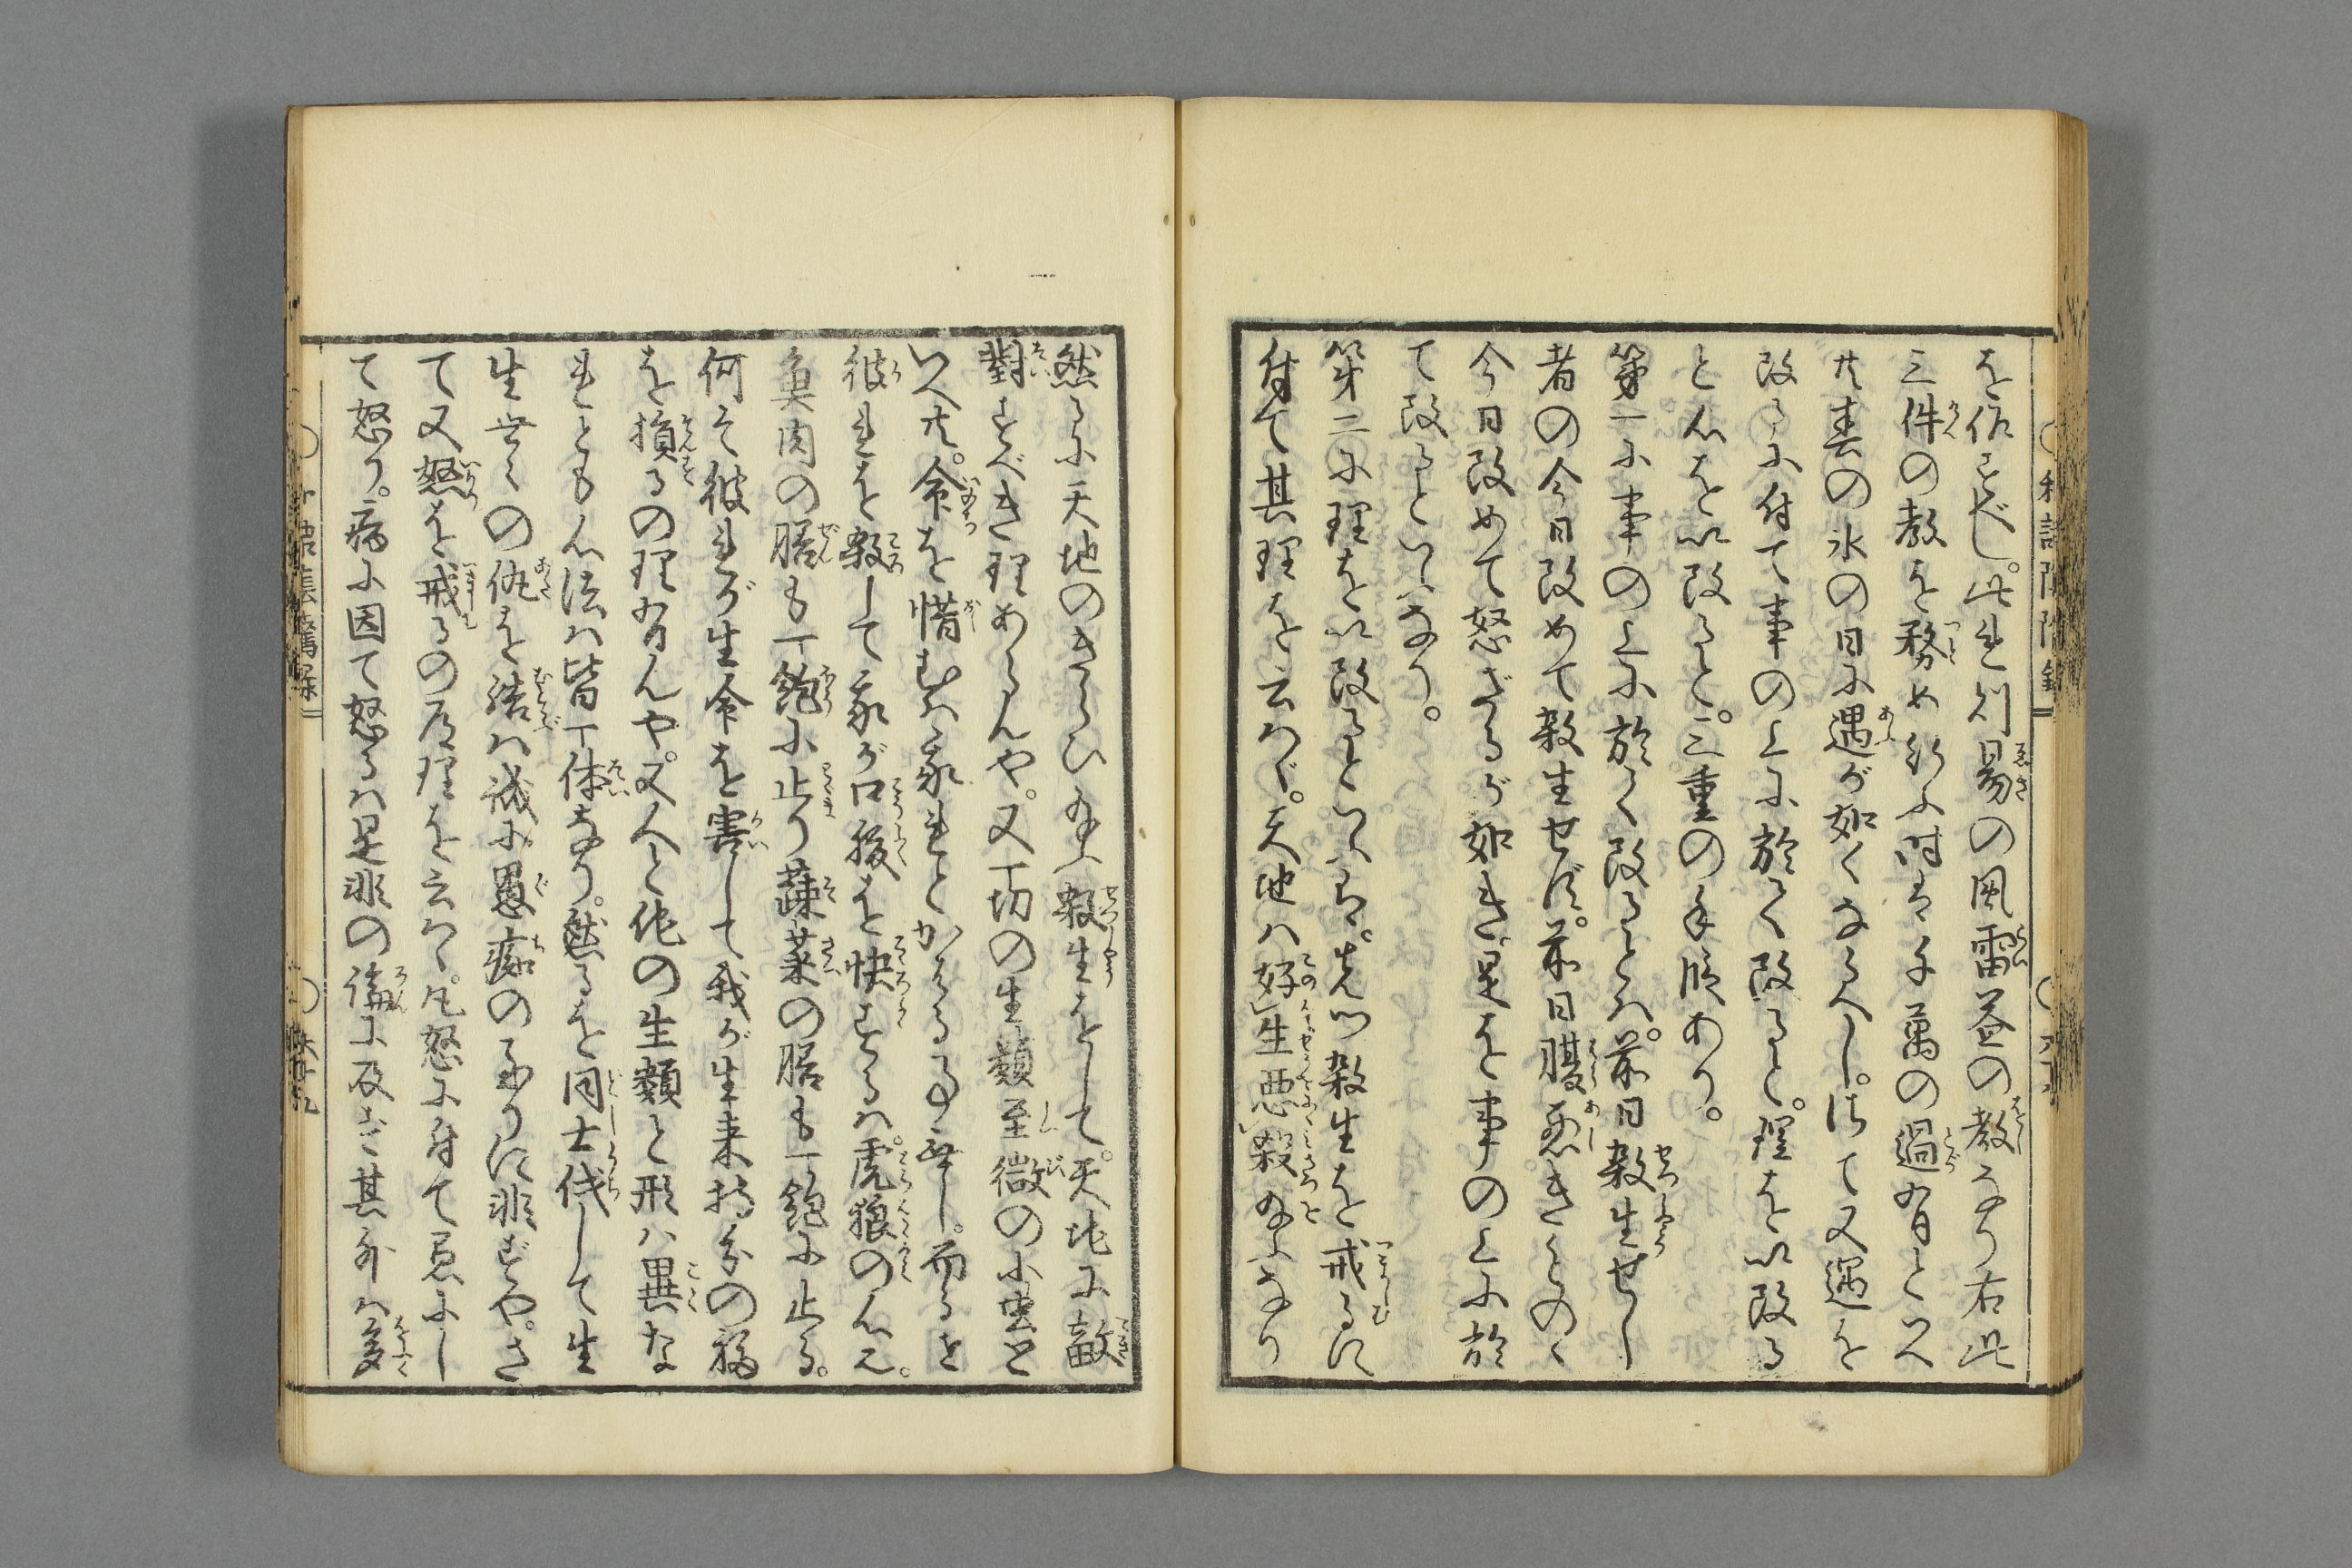 を作すべし。此れ則易の風雷益の教なり右此
三件の教を務め行ふ時は千萬の過有といへ
共春の氷の日に遇が如くなるへし。偖て又過を
改るに付て事の上に於て改ると。理を以改る
と心を以改ると。三重の手段あり。
第一に事の上に於て改るとは。前日殺生せし
者の今日改めて殺生せず。前日腹悪きくのゝ
今日改めて怒ざるが如き。是を事の上に於
て改るといふなり。
第二に理を以改るといふは。先ツ殺生を戒るに
付て其理を云はゞ。天地は好生悪殺給ふなり
然るに天地のきらひ給ふ殺生をして。天地に敵
對すべき理あらんや。又一切の生類至微の小虫と
いへ共。命を惜むは我れとかはる事無し。而るを
彼れを殺して我が口腹を快するは。虎狼の心也。
魚肉の膳も一飽に止り蔬菜の膳も一飽に止る。
何そ彼れが生命を害して我が生来持分の福
を損るの理有んや。又人と他の生類と形は異な
れとも心法は皆一体なり。然るを同士伐して生
生世々の仇を結は誠に愚痴の至りに非ずや。さ
て又怒を戒るの道理を云はゝ。凡怒に付て悪にし
て怒り。病に因て怒るは是非の論に及ばず其外は多